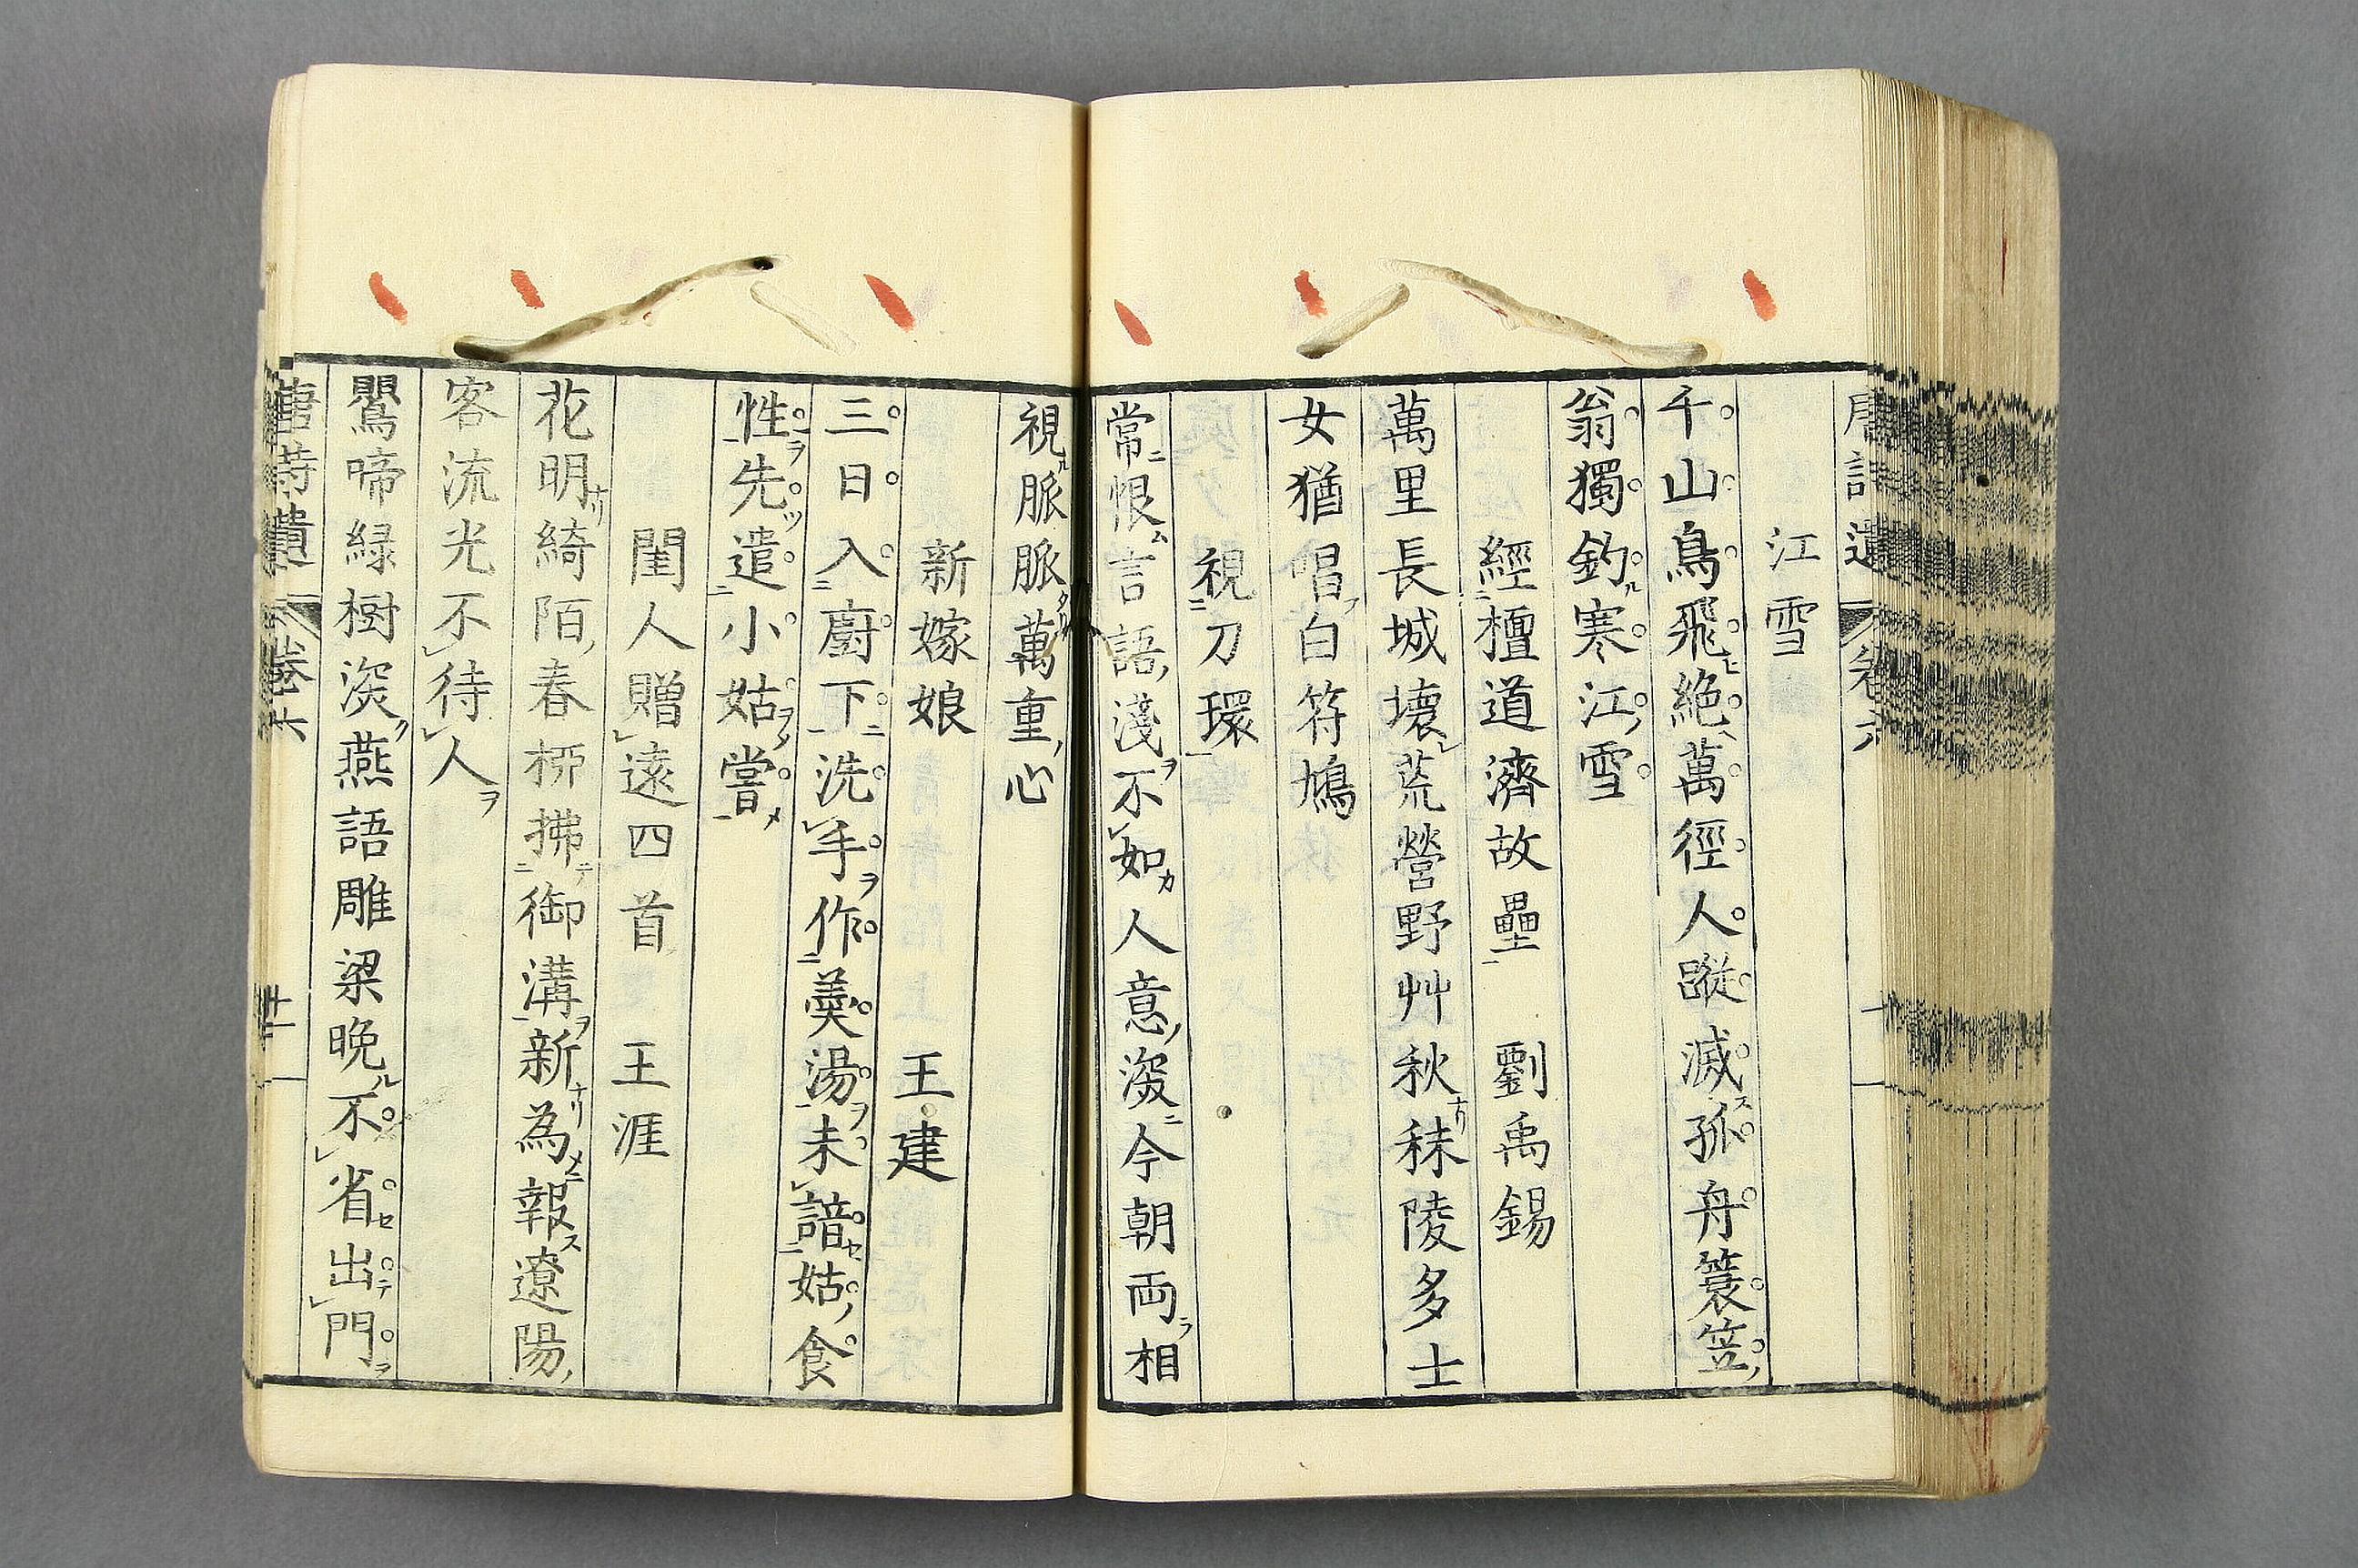 唐詩遺　卷六
江雪
千山鳥飛絶萬徑人蹤滅孤舟簑笠
翁獨釣寒江雪
經檀道濟故壘　劉禹錫
萬里長城壞荒營野艸秋秣陵多士
女猶唱白符鳩
視刀環
常恨言語淺不如人意深今朝両相
視脈脈萬重心
新嫁娘　王建
三日入廚下洗手作羹湯未諳姑食
性先遣小姑嘗
閨人贈遠四首　王涯
花明綺陌春栁拂御溝新為報遼陽
客流光不待人
鸎啼緑樹深燕語雕梁晚不省出門
唐詩遺　卷六　十一